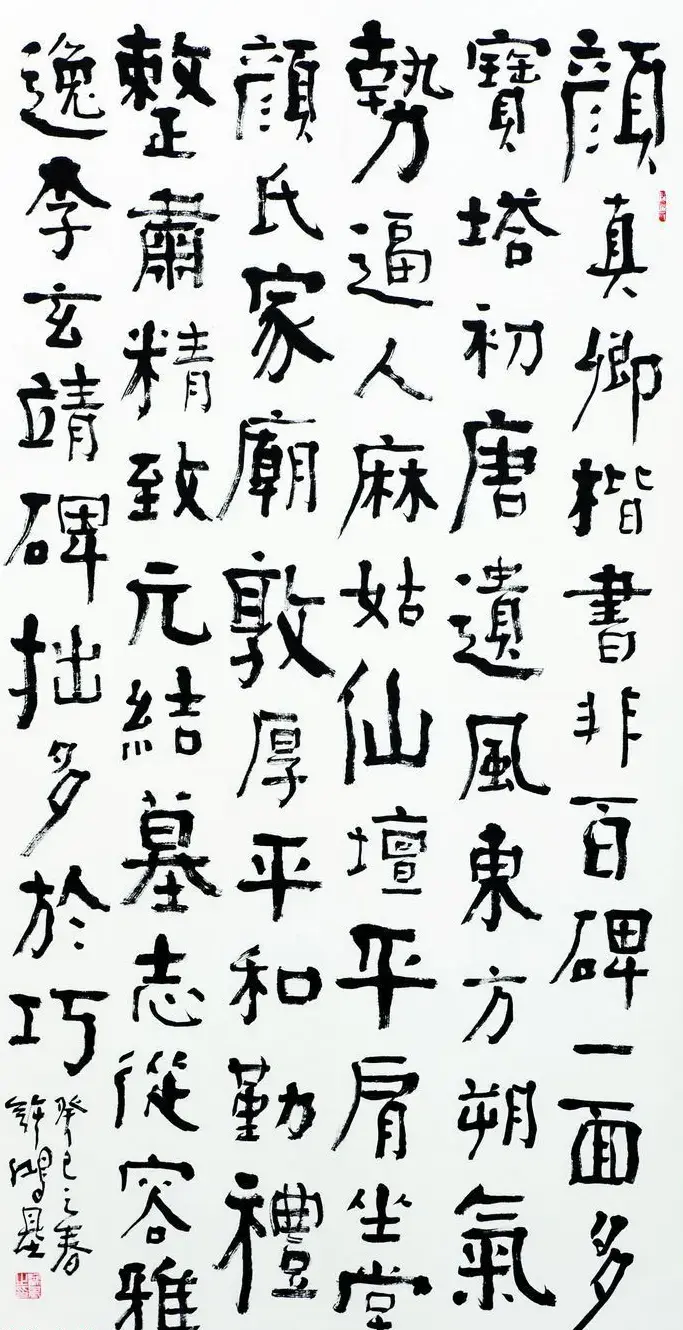 顔真卿楷書非百碑一面多
寶塔初唐遺風東方朔氣
勢逼人麻姑仙壇平肩坐堂
顔氏家廟敦厚平和勤禮
整肅精致元結墓志從容雅
逸李玄靖碑拙多於巧
癸巳之春
許鴻基